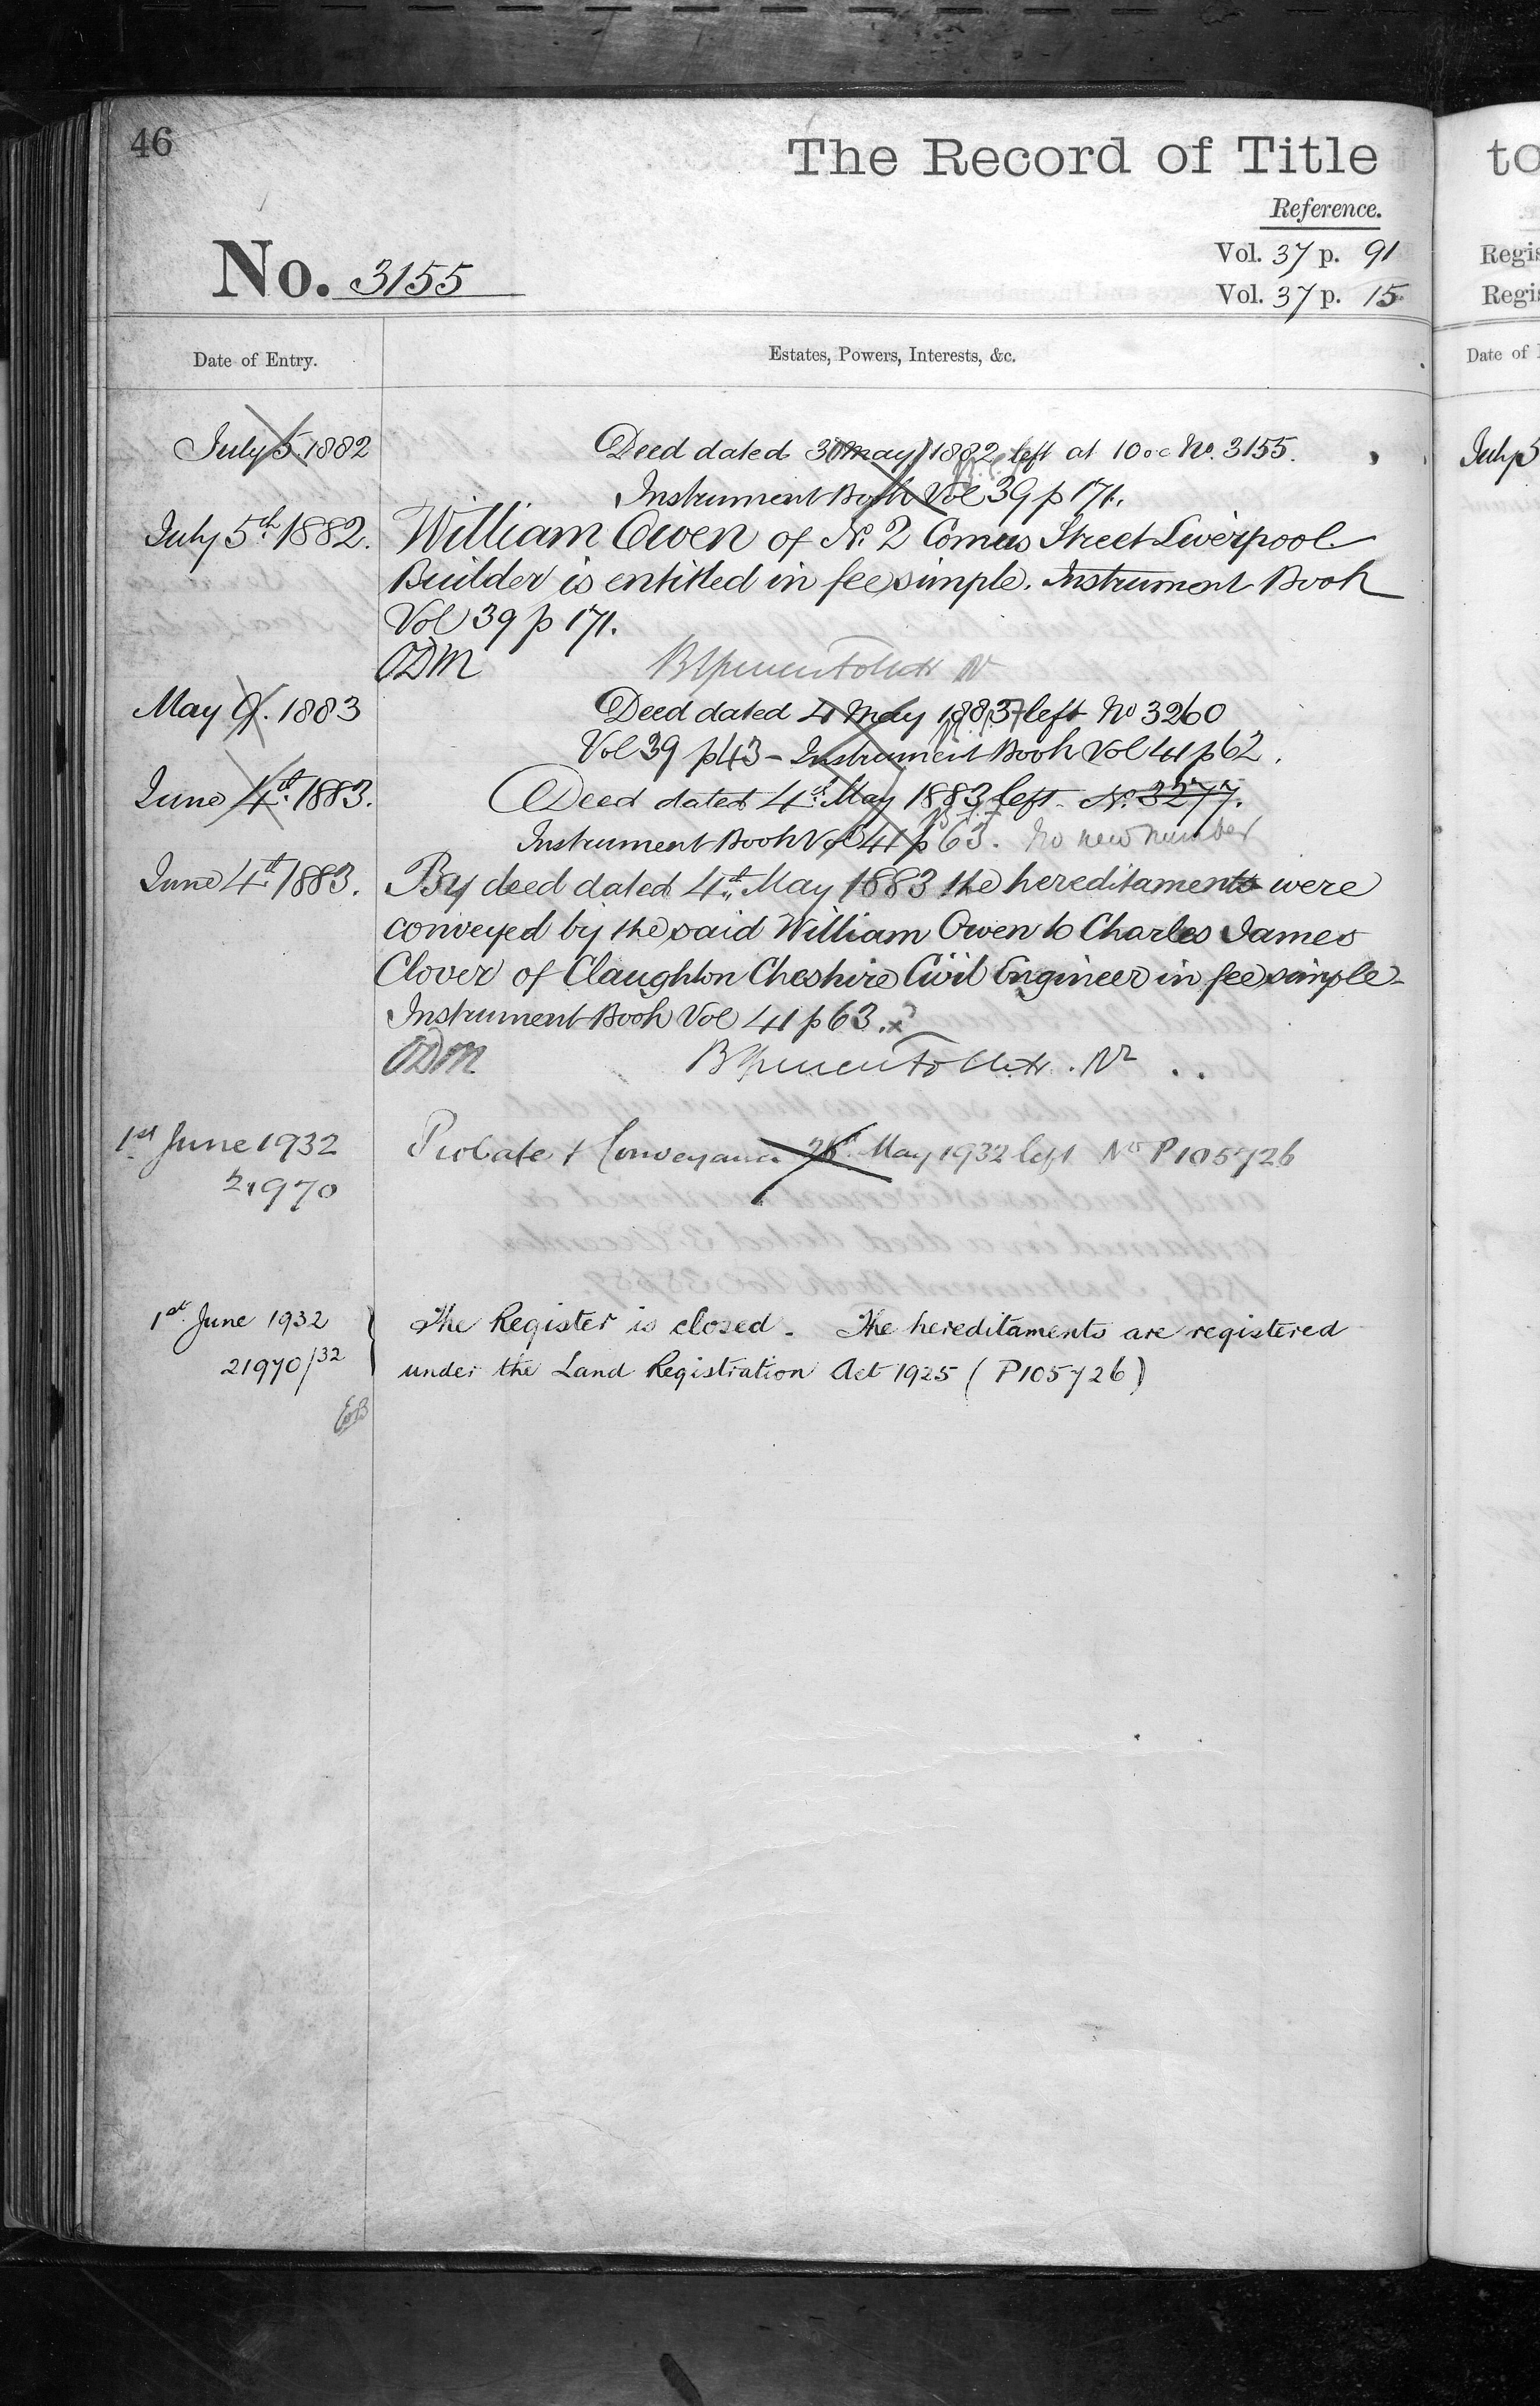 46
The Record of Title
Reference.
No. 3155
Vol. 37 p. 91
Vol. 37 p. 15
Date of Entry.
Estates, Powers, Interests, &c.
July 5. 1882 Deed dated 30 May 1882 left at 10 oc No. 3155.
Instrument Book Vol 39 p 171.
July 5th 1882. William Owen of No. 2 Comus Street Liverpool
Builder is entitled in fee simple. Instrument Book
Vol 39 p 171.
ODM
May 9. 1883 Deed dated 4 May 1883 left No 3260
Vol 39 p 43 - Instrument Book Vol 41 p 62.
June 4th. 1883. Deed dated 4th May 1883 left No. 3277.
Instrument Book Vol 41 p 63. No new number
June 4th 1883. By deed dated 4th May 1883 the hereditaments were
conveyed by the said William Owen to Charles James
Clover of Claughton Cheshire Civil Engineer in fee simple -
Instrument Book Vol 41 p 63.
ODM
1st June 1932 Probate & Conveyance May 1932 left No P105726
21970
1st June 1932 The Register is closed. The hereditaments are registered
21970/32 under the Land Registration Act 1925 (P105726)
to
Regis
Regis
Date of
July 5